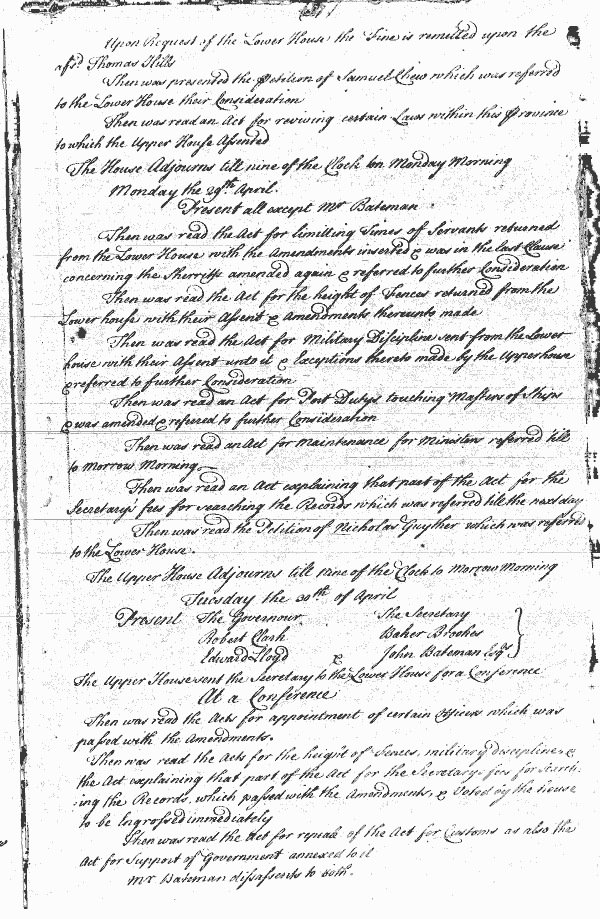 Upon Request of the Lower House the Fine is remitted upon the
afsd. Thomas Hills
Then was presented the Petition of Samuel Chew which was referred
to the Lower House their Consideration
Then was read an Act for reviving certain Laws within this Province
to which the Upper House Assented
The House Adjourns till nine of the Clock on Monday Morning
Monday the 29th April
Present all except Mr Bateman
Then was read the Act for limitting Times of Servants returned
from the Lower House with the Amendments inserted & was in the last Clause
concerning the Sherriffs amended again & referred to further Consideration
Then was read the Act for the height of Fences returned from the
Lower house with their Assent & Amendments thereunto made
Then was read the Act for Military Discipline sent from the Lower
house with their Assent unto it & Exceptions thereto made by the Upper house
& referred to further Consideration
Then was read an Act for Port Dutys touching Masters of Ships
& was amended & referred to further Consideration
Then was read an Act for Maintenance for Ministers referred till
to Morrow Morning
Then was read an Act explaining that part of the Act for the
Secretary's fees for searching the Records which was referred till the next day
Then was read the Petition of Nicholas Guyther which was referred
to the Lower House.
The Upper House Adjourns till nine of the Clock to Morrow Morning
Tuesday the 30th of April
Present The Governour The Secretary
Robert Clark Baker Brookes
Edward Lloyd & John Bateman Esqrs
The Upper House sent the Secretary to the Lower House for a Conference
At a Conference
Then was read the Acts for appointment of certain Officers which was
passed with the Amendments.
Then was read the Acts for the height of Fences, military discipline, &
the Act explaining that part of the Act for the Secretary's fees for search-
:ing the Records, which passed with the Amendments, & Voted by the house
to be Ingrossed immediately
Then was read the Act for repeal of the Act for Customs as also the
Act for Support of Government annexed to it
Mr Bateman dissassents to both.